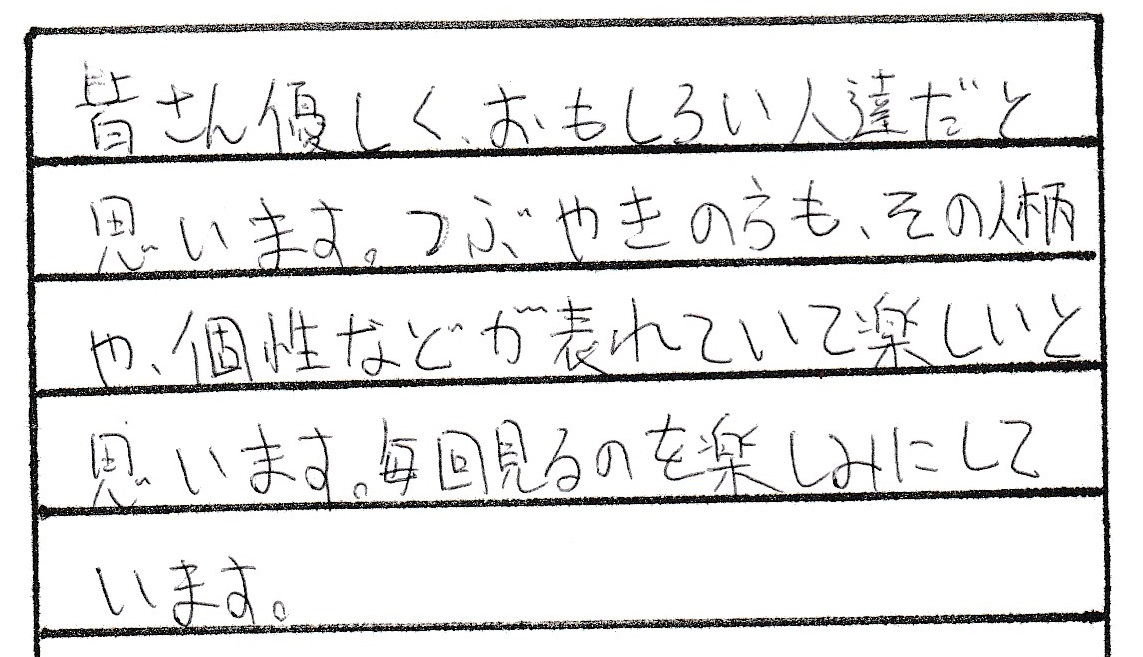 皆さん優しく、おもしろい人達だと
思います。つぶやきの方も、その人柄
や、個性などが表れていて楽しいと
思います。毎回見るのを楽しみにして
います。